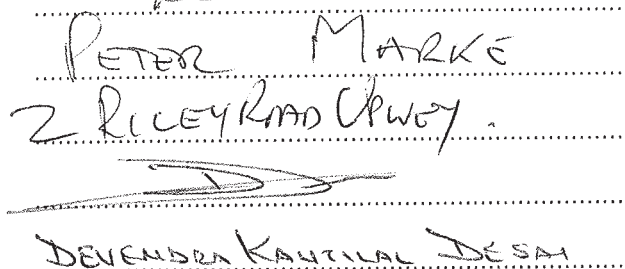 PETER MARKE
2 RILEY ROAD UPWEY.
DEVENDRA KANTILAL DESAI